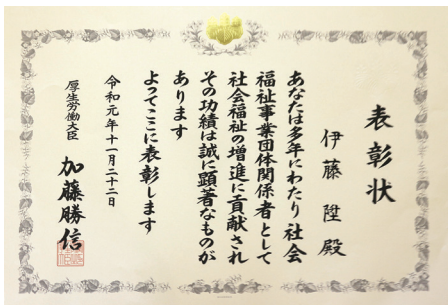 表彰状
伊藤陞殿
あなたは多年にわたり社会
福祉事業団体関係者として
社会福祉の増進に貢献され
その功績は誠に顕著なものが
あります
よってここに表彰します
令和元年十一月二十二日
厚生労働大臣 加藤勝信